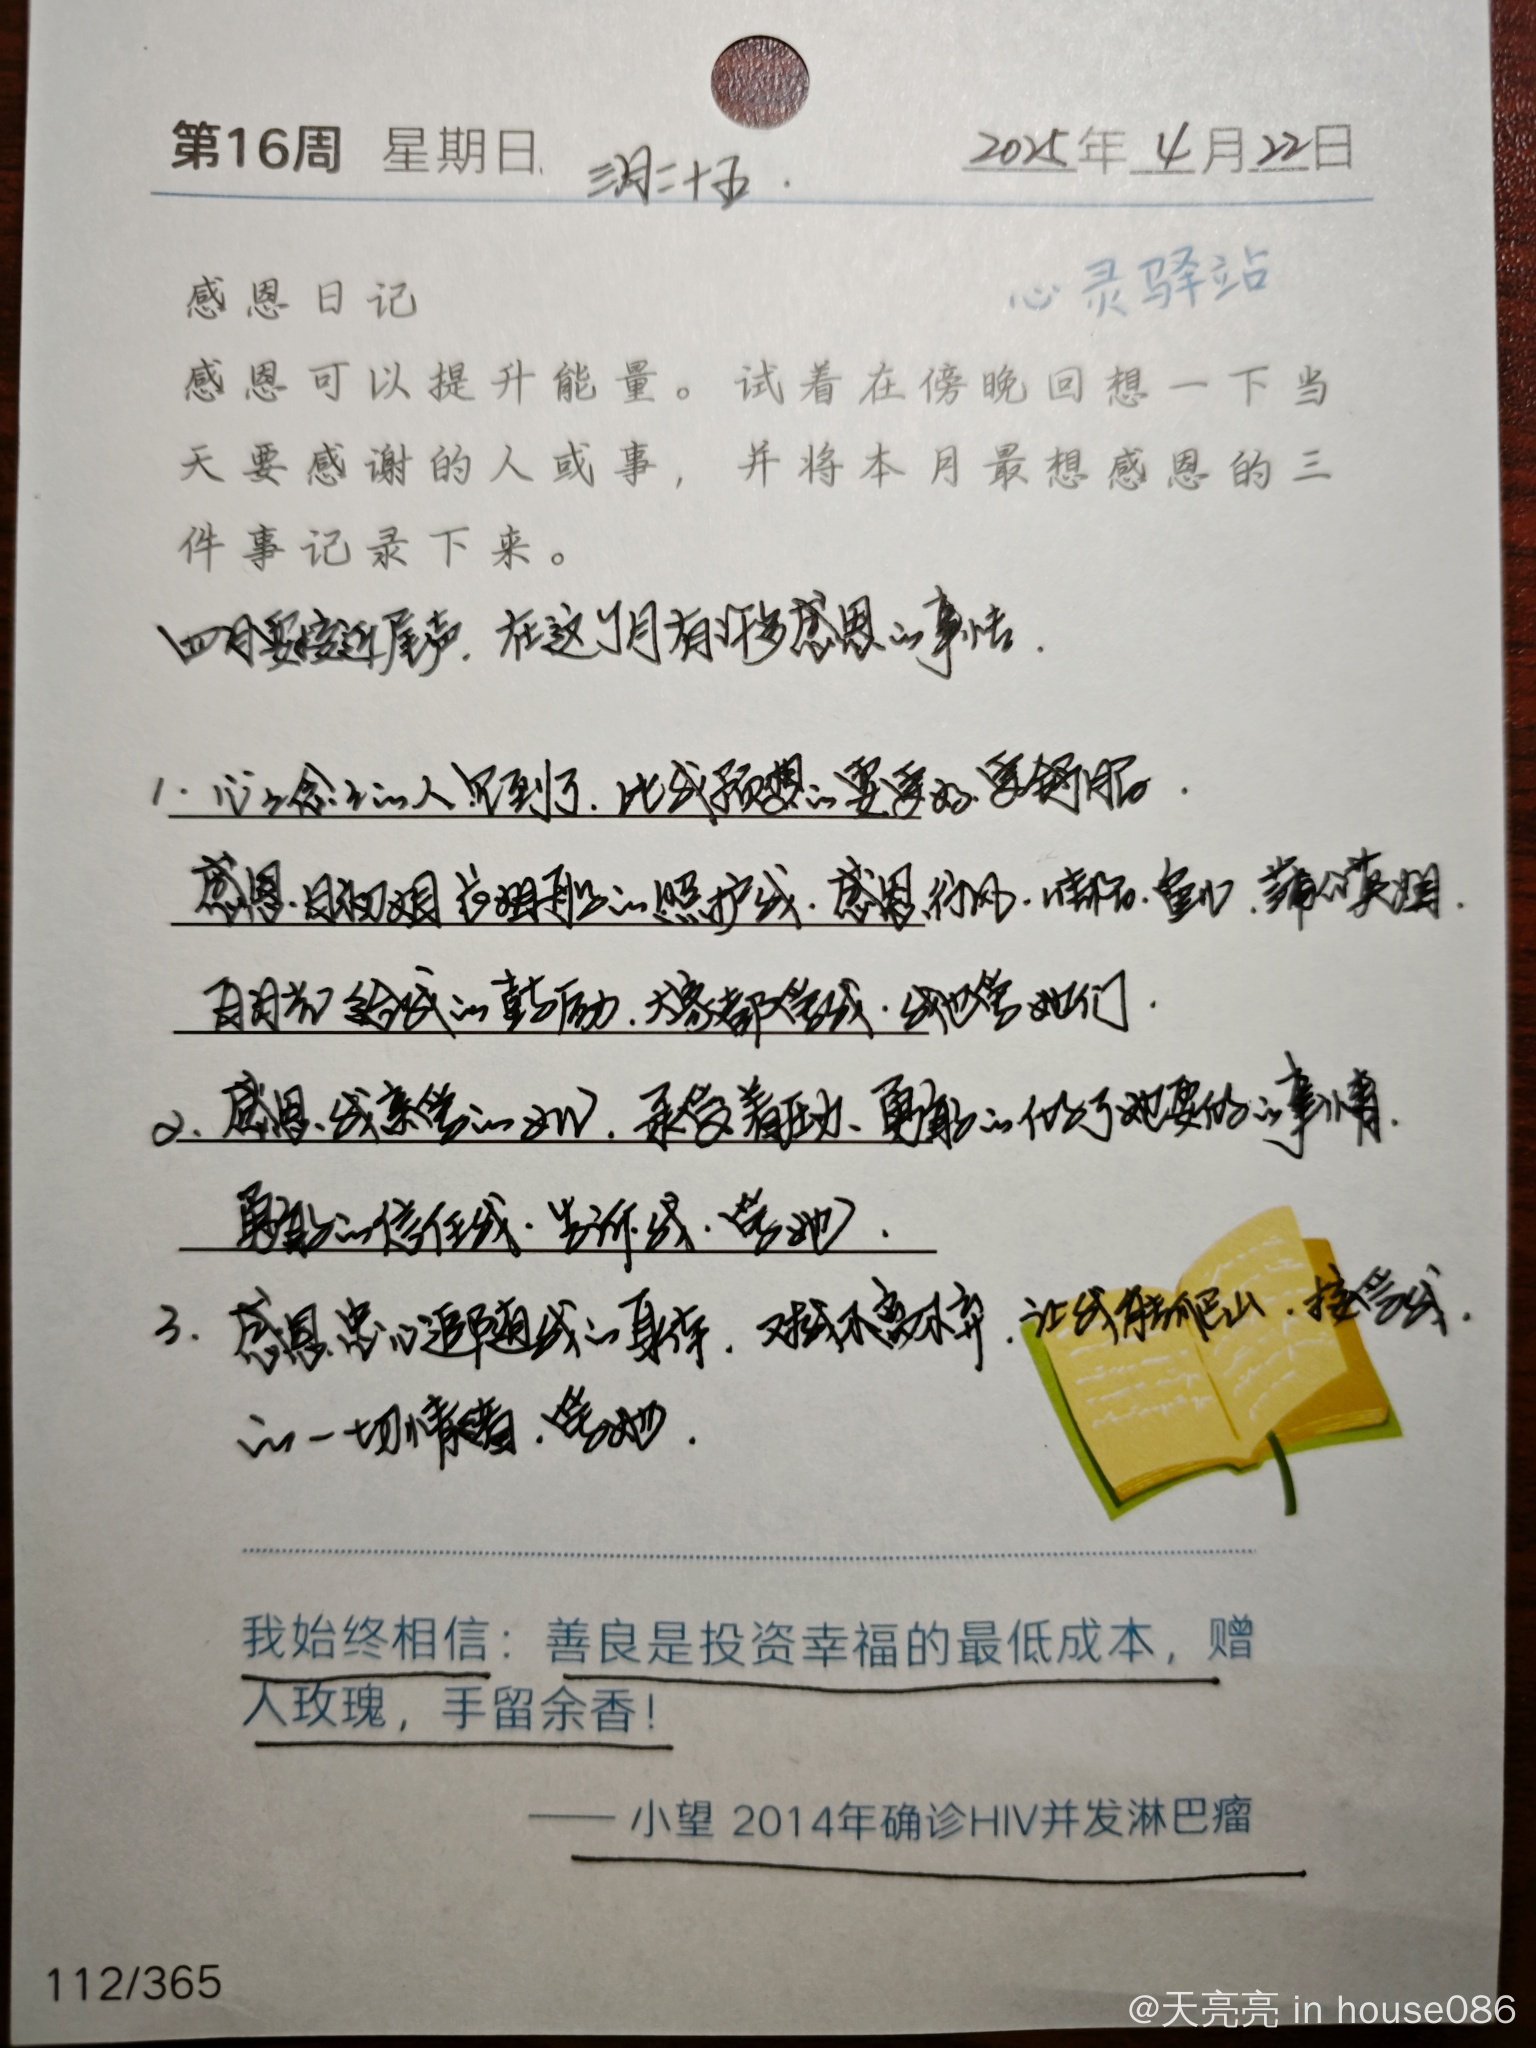 第16周 星期日 三月二十五. 2025年4月22日
感恩日记 心灵驿站
感恩可以提升能量。试着在傍晚回想一下当
天要感谢的人或事，并将本月最想感恩的三
件事记录下来。
四月要接近尾声.在这个月有许多感恩的事情.
1.心心念念的人见到了.比我预想的要更好.更舒服.
感恩.的照护我.感恩
给我的鼓励.大家都爱我.我也爱她们.
2.感恩.我亲爱的女儿.承受着压力、勇敢的做了她要做的事情.
勇敢的信任我.告诉我.爱她.
3.感恩.忠心追随我的身体.对我不离不弃.让我有能爬山.接受我.
的一切情绪.爱她.
我始终相信：善良是投资幸福的最低成本，赠
人玫瑰，手留余香！
——小望 2014年确诊HIV并发淋巴瘤
112/365
@天亮亮 in house086